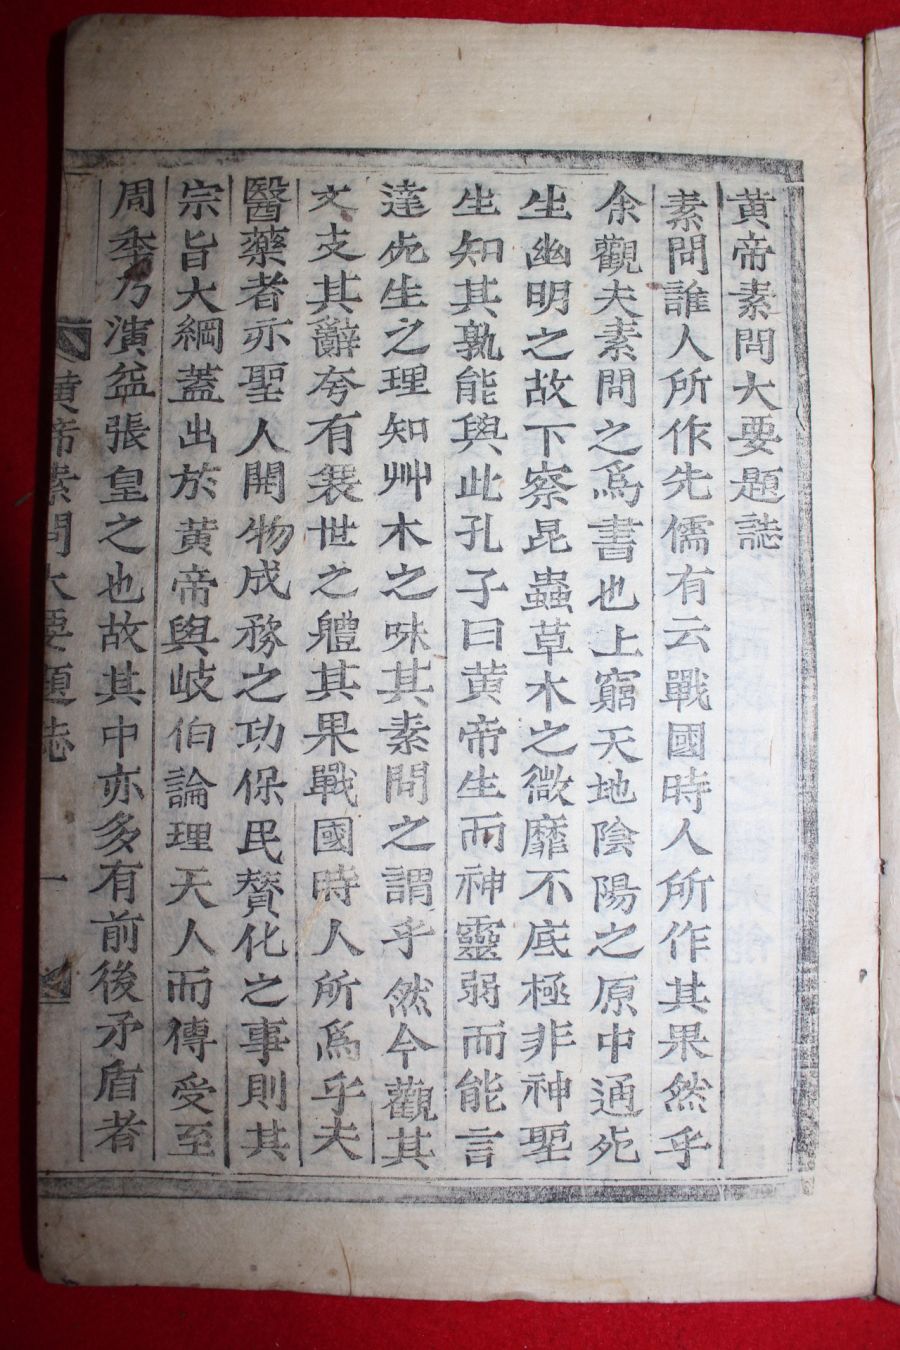 黄帝素問大要題誌
素問誰人所作先儒有云戰國時人所作其果然乎
余觀夫素問之爲書也上窮天地陰陽之原中通死
生幽明之故下察昆蟲草木之微靡不底極非神聖
生知其孰能與此孔子曰黄帝生而神靈弱而能言
達死生之理知艸木之味其素問之謂乎然今觀其
文支其辭夸有衰世之軆其果戰國時人所爲乎夫
醫藥者亦聖人開物成務之功保民贊化之事則其
宗旨大綱蓋出於黄帝與岐伯論理天人而傳受至
周季乃演益張皇之也故其中亦多有前後矛盾者
黄帝素問大要題誌 一